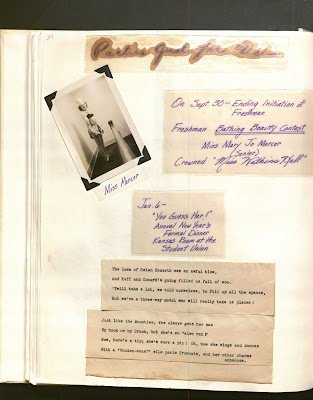 Parties Just for
On Sept. 30 - Ending Initiation of
Freshmen
Freshman Bathing Beauty Contest
Miss Mary Jo Mercer
(Senior)
Crowned "Miss Watkins Hall"
Miss Mercer
Jan. 6 -
"You Guess Har!"
Annual New Year's
Formal Dinner
Kansas Room at the
Student Union
The loss of Helen Howarth was an awful blow,
And Haff and Conard's going filled us full of woe.
'Twill take a lot, we told ourselves, to fill up all the spaces,
But we've a three-way model who will really take us places!
Just like the Mounties, she always gets her man
By hook or by Crook, but she's no "also ran!"
Now, here's a tip; she's sure a pip! Oh, how she wings and dances
With a "Voulez-vous?" elle parle francais, and her other chares
enhances.